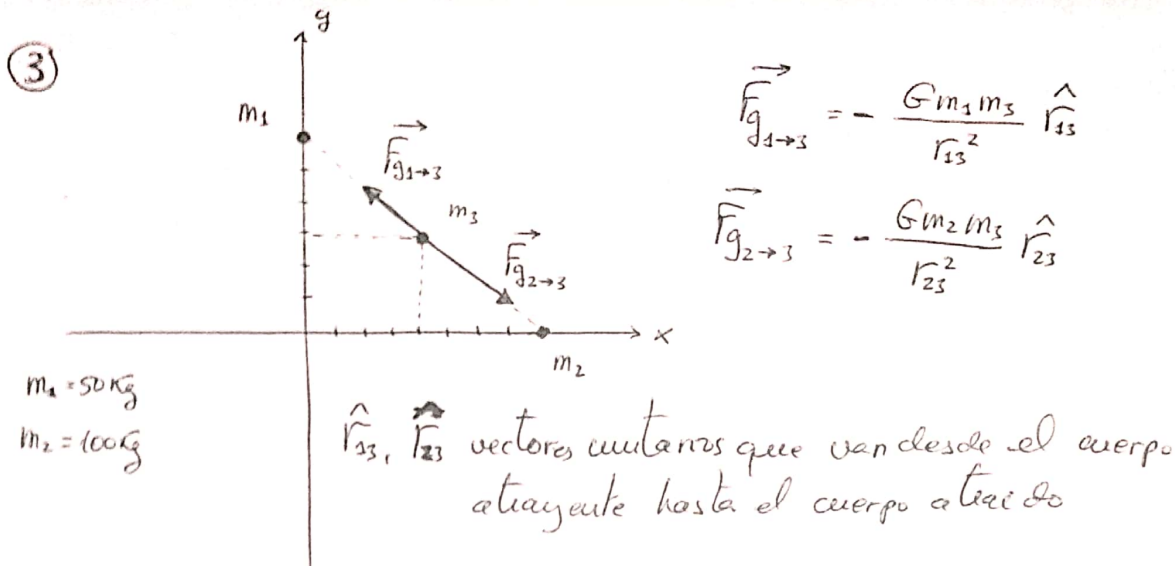 ③
y
m₁
F⃗g₁→₃
m₃
F⃗g₂→₃
x
m₂
F⃗g₁→₃ = - G m₁ m₃ / r₁₃² r̂₁₃
F⃗g₂→₃ = - G m₂ m₃ / r₂₃² r̂₂₃
m₁ = 50 Kg
m₂ = 100 Kg
r̂₁₃, r̂₂₃ vectores unitarios que van desde el cuerpo
atrayente hasta el cuerpo atraido